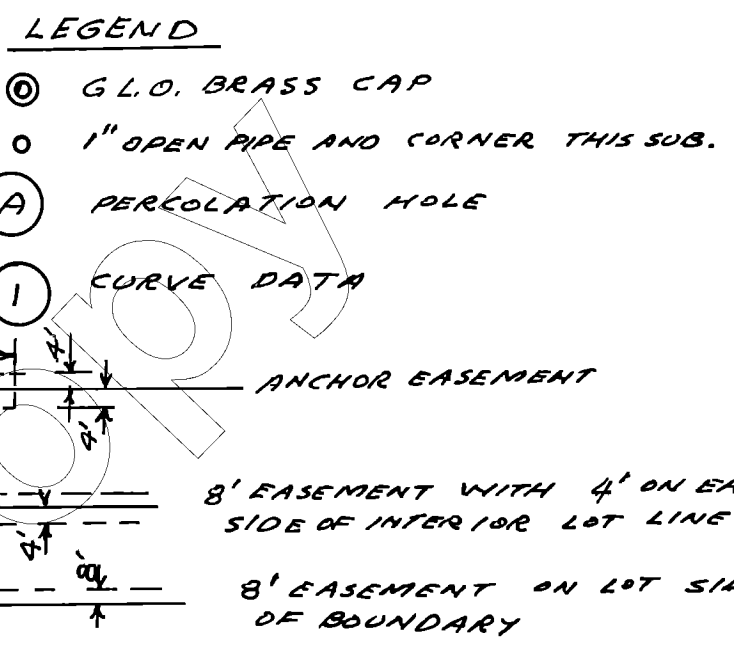 LEGEND
G.L.O. BRASS CAP
1" OPEN PIPE AND CORNER THIS SUB.
A PERCOLATION HOLE
1 CURVE DATA
4'
4'
ANCHOR EASEMENT
8' EASEMENT WITH 4' ON EA
SIDE OF INTERIOR LOT LINE
4'
8'
8' EASEMENT ON LOT SI
OF BOUNDARY
opy